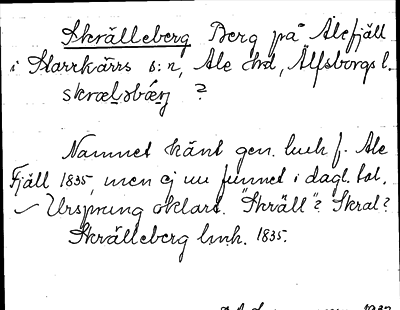 Skrälleberg Berg på Alefjäll
i Starrkärrs s:n, Ale hd, Älfsborgs l.
skræləbǽrj ?
Namnet känt gen. lmh f. Ale
Fjäll 1835, men ej nu funnet i dagl. tal.
Ursprung oklart. "Skräll"? Skral?
Skrälleberg lmh. 1835.